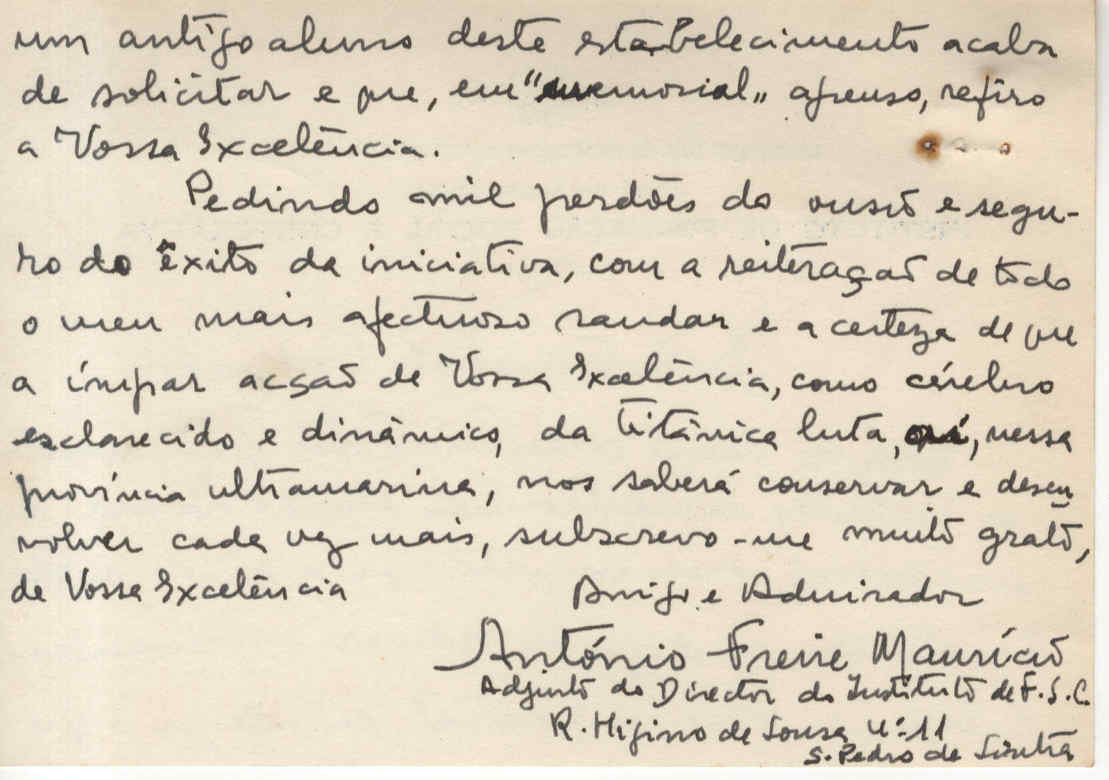 um antigo aluno deste estabelecimento acaba
de solicitar e que, em "memorial" apenso, refiro
a Vossa Excelência.
Pedindo mil perdões do ousio e segu-
ro do êxito da iniciativa, com a reiteração de todo
o meu mais afectuoso saudar e a certeza de que
a ímpar acção de Vossa Excelência, como cérebro
esclarecido e dinâmico, da titânica luta, aí, nessa
província ultramarina, nos saberá conservar e desen
volver cada vez mais, subscrevo-me muito grato,
de Vossa Excelência
Amigo e Admirador
António Freire Maurício
Adjunto do Director do Instituto de F.S.C.
R. Higino de Sousa nº 11
S. Pedro de Sintra